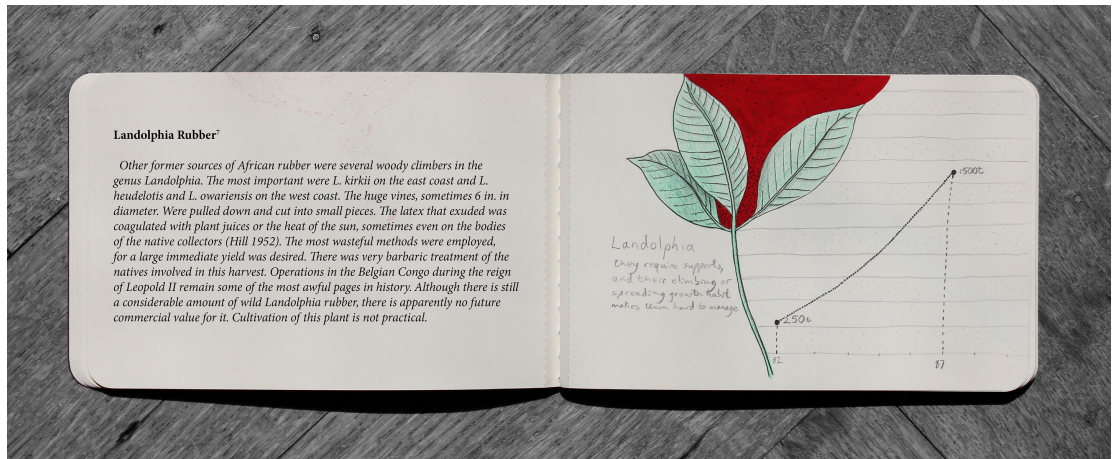 Landolphia Rubber⁷
Other former sources of African rubber were several woody climbers in the
genus Landolphia. The most important were L. kirkii on the east coast and L.
heudelotis and L. owariensis on the west coast. The huge vines, sometimes 6 in. in
diameter. Were pulled down and cut into small pieces. The latex that exuded was
coagulated with plant juices or the heat of the sun, sometimes even on the bodies
of the native collectors (Hill 1952). The most wasteful methods were employed,
for a large immediate yield was desired. There was very barbaric treatment of the
natives involved in this harvest. Operations in the Belgian Congo during the reign
of Leopold II remain some of the most awful pages in history. Although there is still
a considerable amount of wild Landolphia rubber, there is apparently no future
commercial value for it. Cultivation of this plant is not practical.
Landolphia
they require supports,
and their climbing or
spreading growth habit
makes them hard to manage
1500t
250t